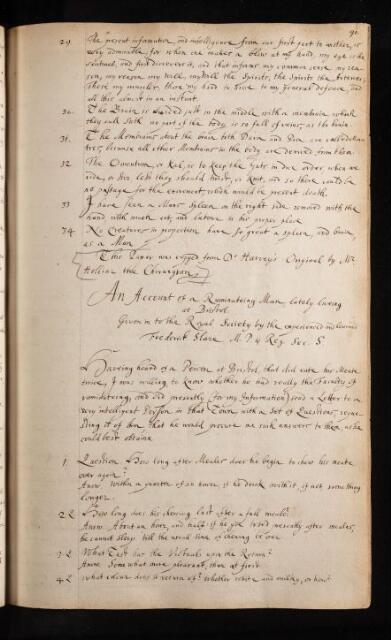 91.
29. The present information, and intelligence from our first part to another, is
very admirable, for when one makes a blow at my hand, my eye is the
Centinel, and first discovers it, and that informs my common sence, my
reason, my will, my will the Spirits, the Spirits the Nerves
these my muscles, these my hand in time to my general defence, and
all this almost in an instant.
30. The Brain is divided just in the middle with a membrane, which
they call Sith no part of the body is so full of veins, as the brain.
31. The Membrans about the brain both Dura and Pia are called
because all other Membrans in the body are derived from them.
32. The Omentum, or Kel, is to keep the Guts in due order, when we
ride, or stir lest they should, or knot, and so there could be
no passage for the excrement, which would be present death.
33 I have seen a Mans Spleen in the right side removed with the
hand with much ease, and latorn in his proper place
34. No Creature in proportion have so great a spleen, and brain,
as a Man
This Paper was copyed from Dr Harvey's Original by Mr
Hollier the Chirurgion
An Account of a Ruminating Man lately living
at Bristol.
Given in to the Royal Society by the experienced and learned
Frederick Slare M. D. & Reg. Soc. S.
Having heard of a Person at Bristol, that did eate his Meate
twice, I was willing to know whether he had really the Faculty of
ruminating, and did presently (for my Information) send a Letter to a
very intelligent Person in that Town with a Set of Questions, reque-
sting it of him that he would procure me such answers to them, as he
could best obtaine
1 Question How long after Meales does he begin to chew his meate
over again?
Answ. Within a quarter of an hower, if he drink with it, if not something
longer.
2 Q How long does his chewing last after a full meale?
Answ. About an hour, and half, if he goe to bed presently after meales,
he cannot sleep till the usual time of chewing be over
3 Q What Tast has the Victuals upon the Return?
Answ. Somewhat more pleasant, than at first
4 Q What colour does it return of? whether white and milky, or how?